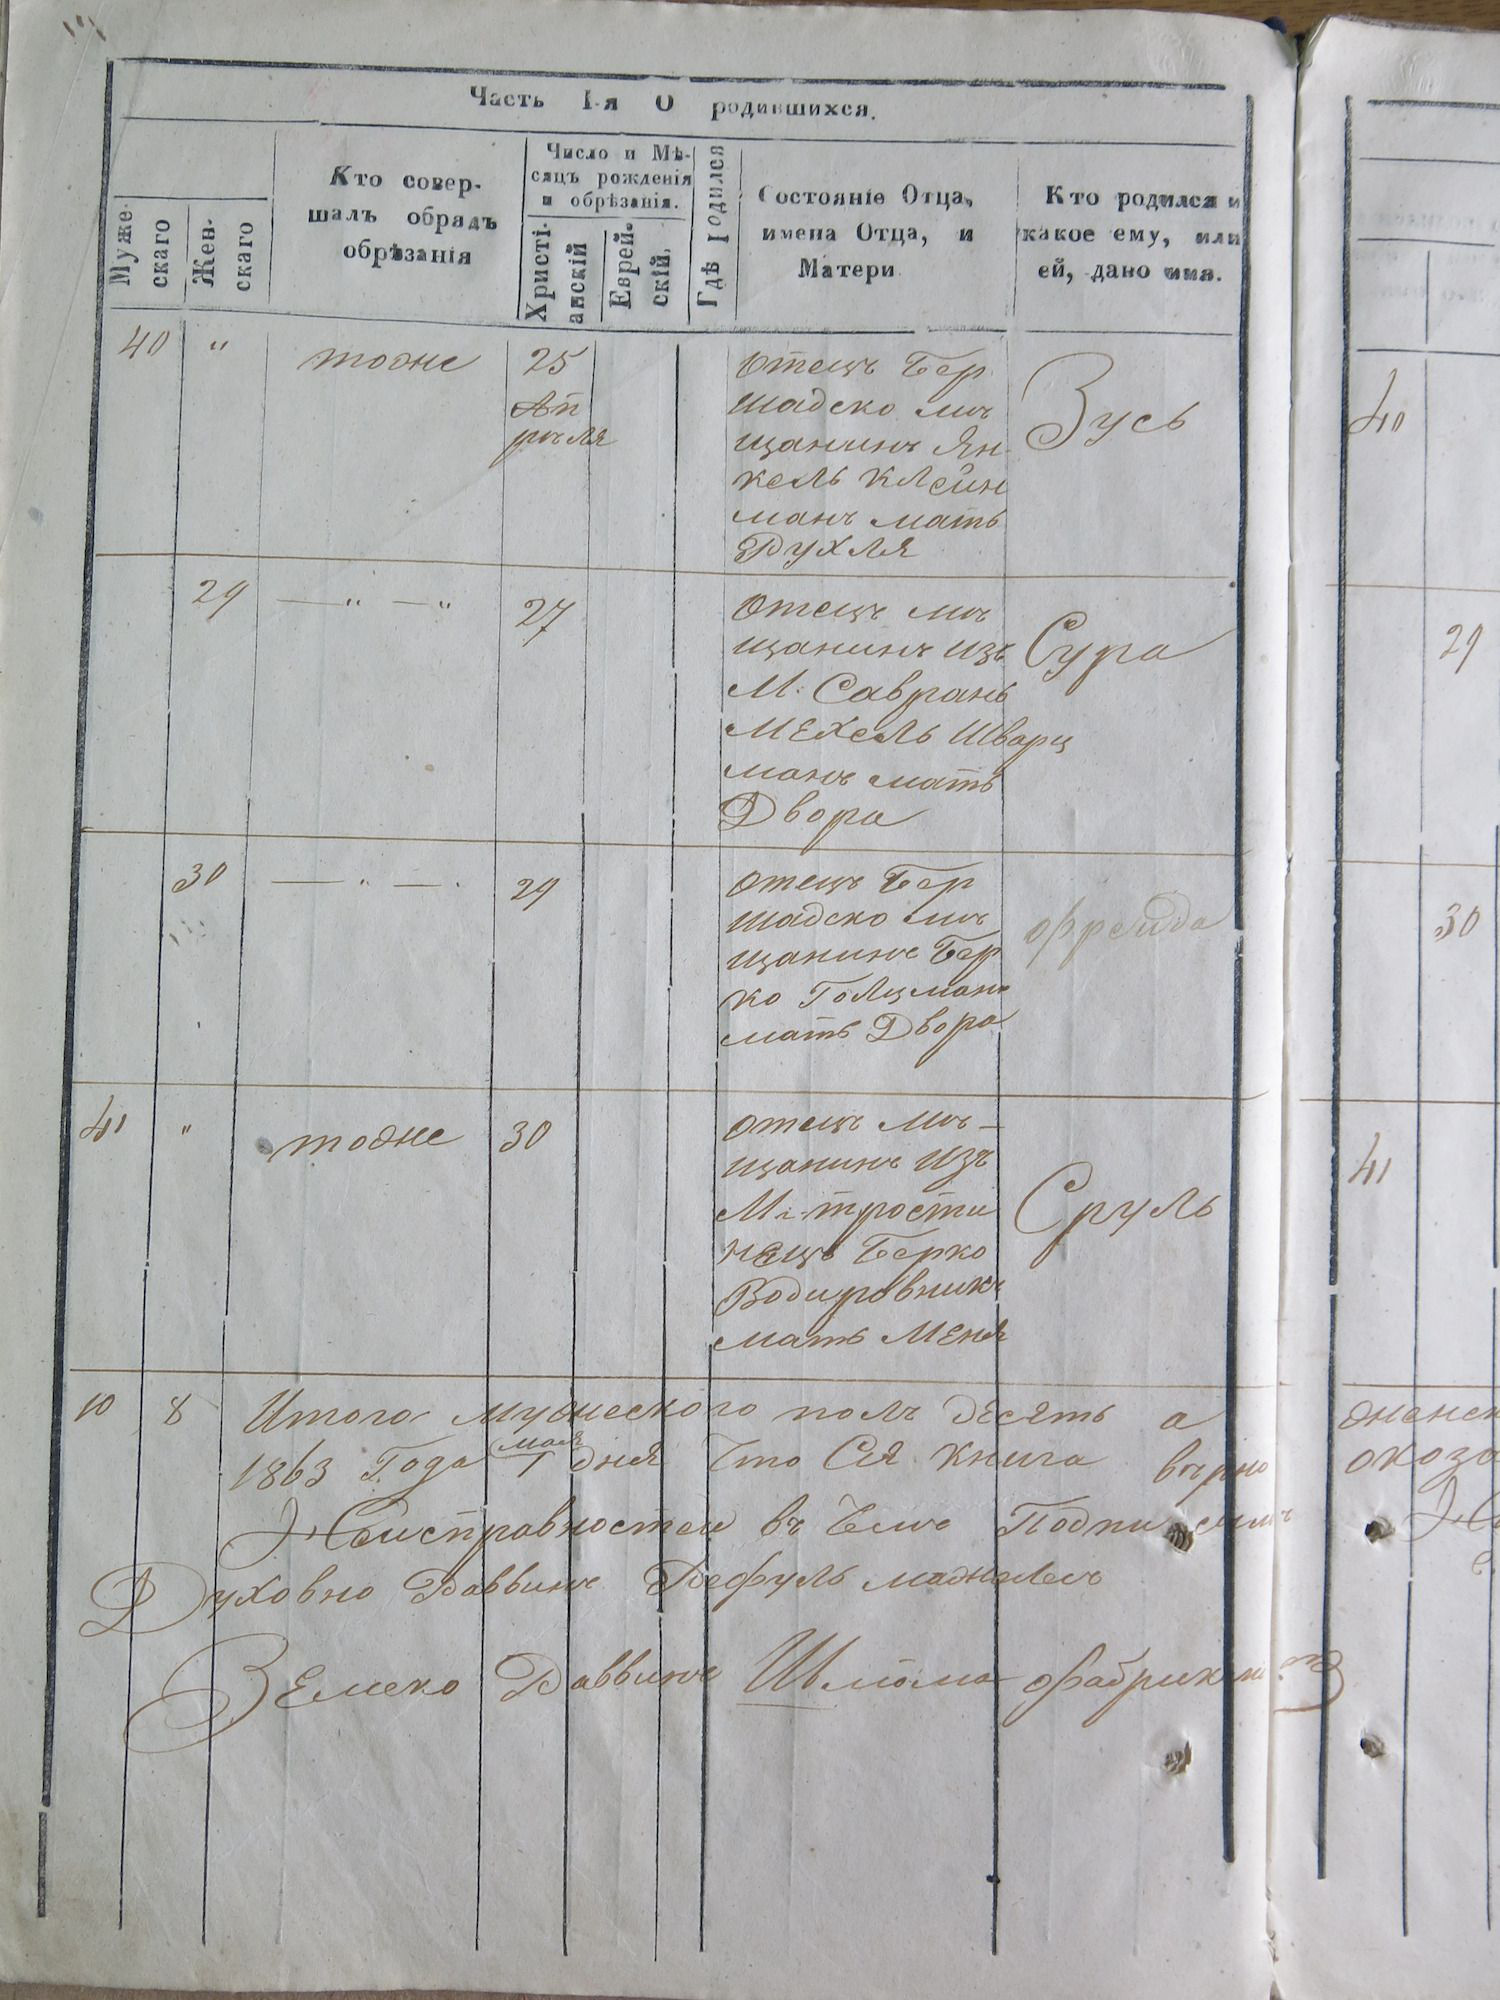 Часть I-я О родившихся.
Муже-
скаго
Жен-
скаго
Кто совер-
шалъ обрядъ
обрѣзанія
Число и Мѣ-
сяцъ рожденія
и обрѣзанія.
Христі-
анскій
Еврей-
скій.
Гдѣ родился
Состояніе Отца,
имена Отца, и
Матери
Кто родился и
какое ему, или
ей, дано имя.
40 " тоже 25
Ап
рѣля
Отецъ Бер
шадско мѣ
щанинъ Ян-
кель Клейн
манъ мать
Рухля
Зусь
29 — " — " 27
Отецъ мѣ
щанинъ изъ
М. Саврань
Мехель Шварц
манъ мать
Двора
Сура
30 — " — " 29
Отецъ Бер
шадско мѣ
щанинъ Бер
ко Голцман
мать Двора
Фрейда
41 " тоже 30
Отецъ мѣ-
щанинъ изъ
М. Трости
нецъ Берко
мать Меня
Сруль
10 8 Итого мужеского полъ десять а
1863 Года мая 1 дня Что Ся книга вѣрно
Неисправностей въ Чемъ
Духовно Раввинъ
Земско Раввинъ Шлёма
40
29
30
41